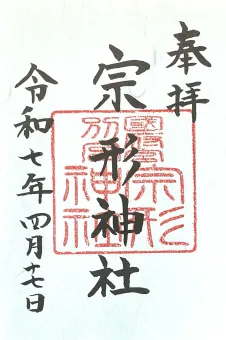 奉拝
宗形神社
令和七年四月十七日
宗形
神社